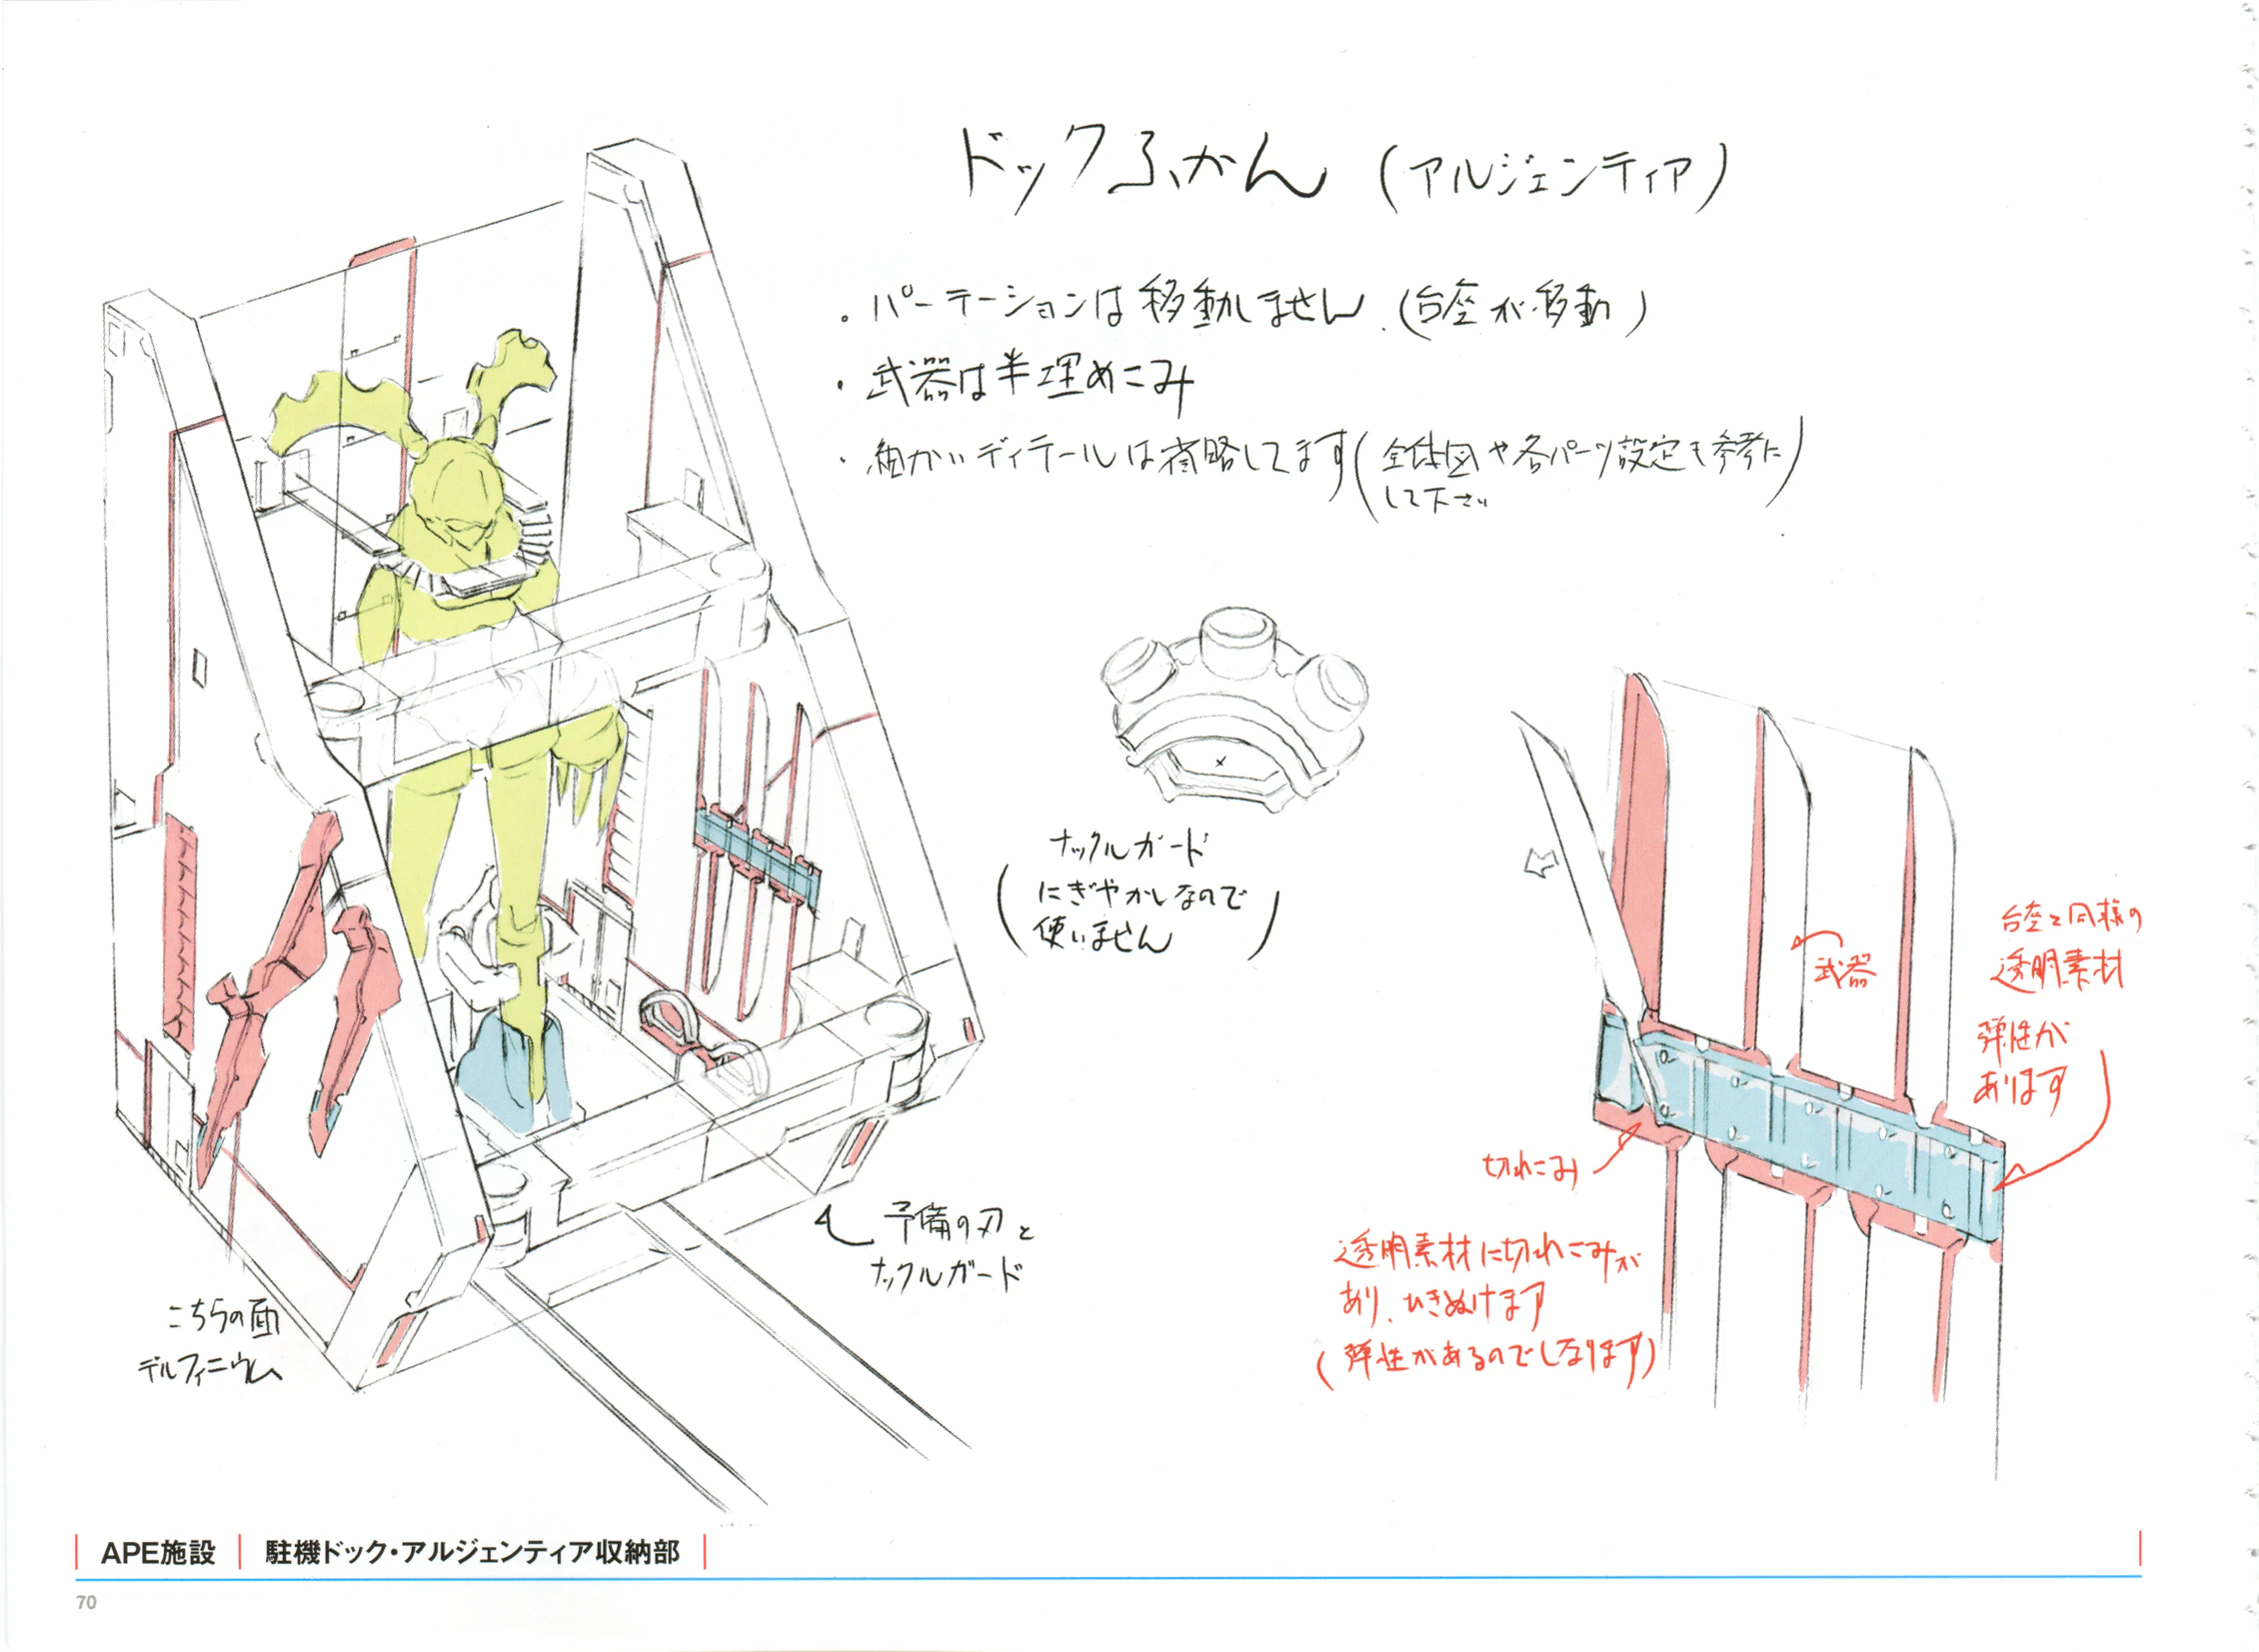 ドックふかん (アルジェンティア)
・パーテーションは移動しません。(台座が移動)
・武器は半埋めこみ
・細かいディテールは省略してます(全体図や各パーツ設定も参考に
して下さい)
ナックルガード
(にぎやかしなので
使いません)
台座と同様の
透明素材
武器
弾性が
あります
切れこみ
予備の刃と
ナックルガード
透明素材に切れこみが
あり、ひきぬけます
(弾性があるのでしなります)
こちらの面
デルフィニウム
APE施設 駐機ドック・アルジェンティア収納部
70